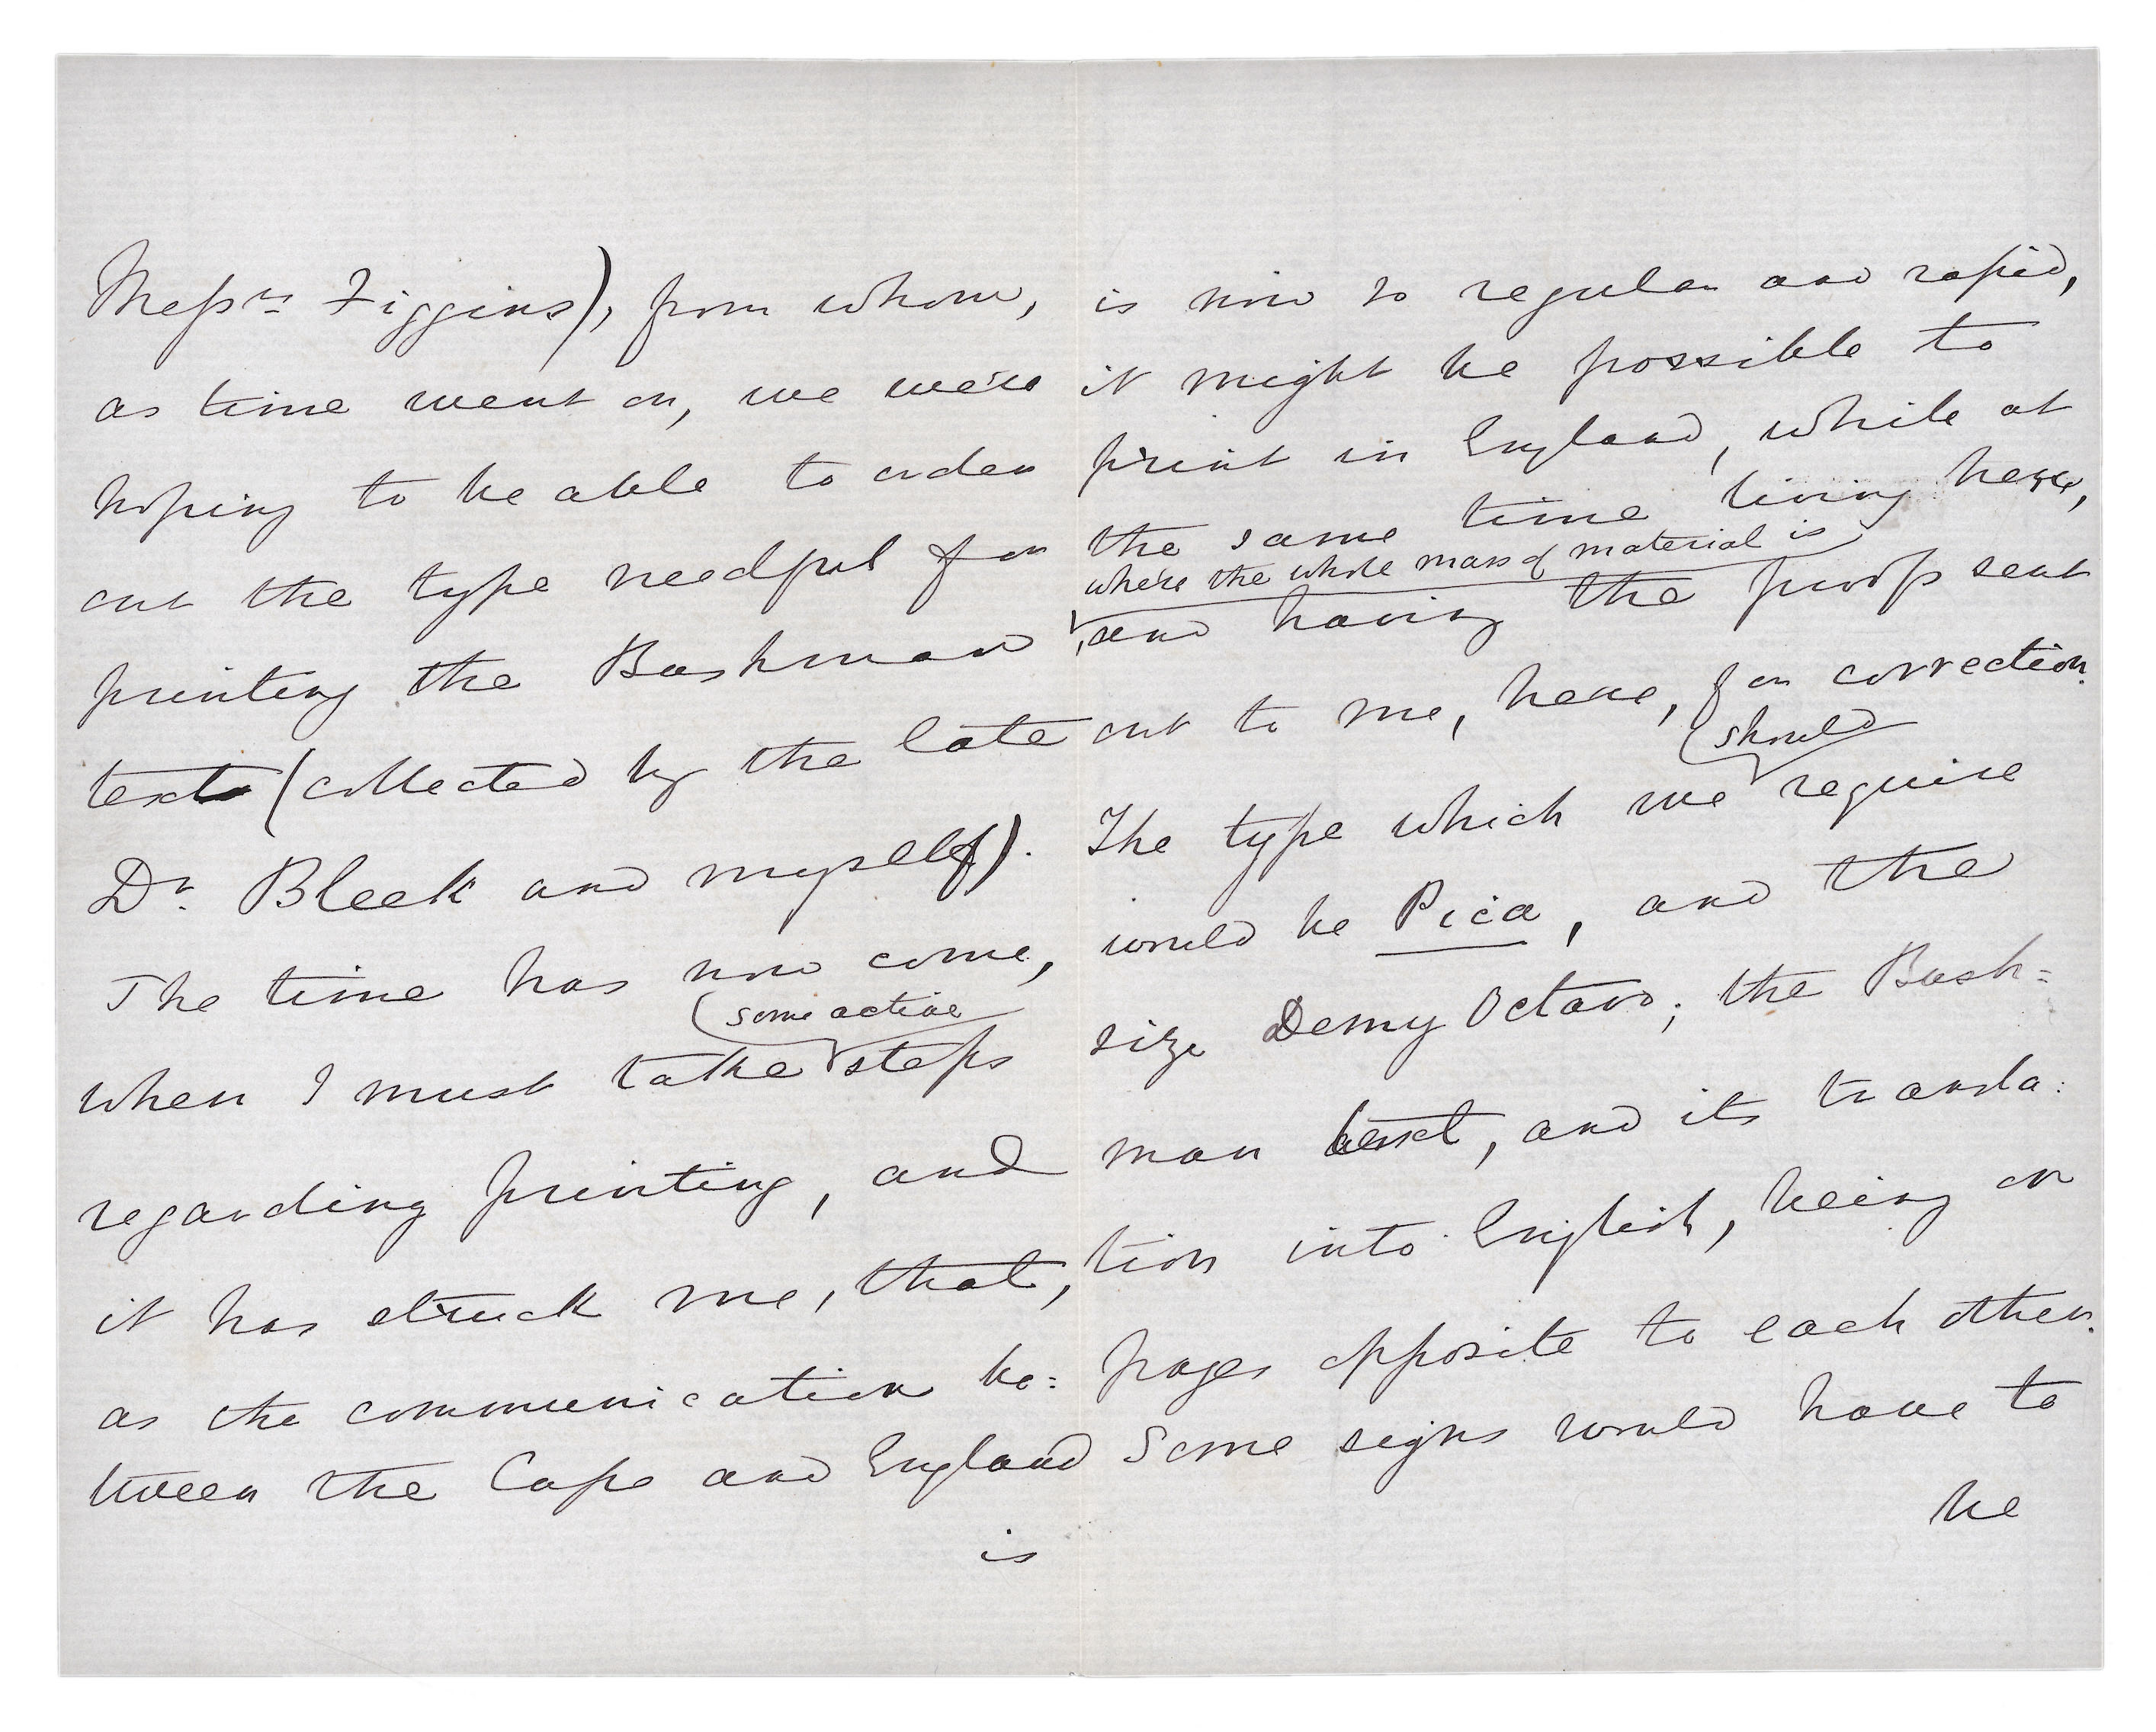 Messrs Figgins), from whom,
as time went on, we were
hoping to be able to order
out the type needful for
printing the Bushman
text (collected by the late
Dr. Bleek and myself).
The time has now come,
some active
when I must take steps
regarding printing, and
it has struck me, that,
as the communication be=
tween the Cape and England
is
is now so regular and rapid,
it might be possible to
print in England, while at
the same time living here,
where the whole mass of material is
and having the proofs sent
out to me, here, for correction.
should
The type which we require
would be Pica, and the
size Demy Octavo; the Bush=
man text, and its transla:
tion into English, being on
pages opposite to each other.
Some signs would have to
be